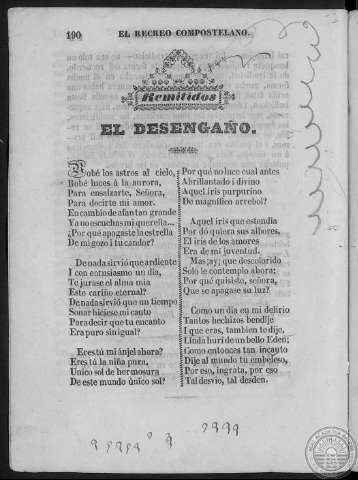 190
EL RECREO COMPOSTELANO.
Remitidos
EL DESENGAÑO.
Robé los astros al cielo,
Robé luces á la aurora,
Para ensalzarte, Señora,
Para decirte mi amor.
En cambio de afan tan grande
Ya no escuchas mi querella...
¿Por qué apagaste la estrella
De mi gozo i tu candor?
De nada sirvió que ardiente
I con entusiasmo un dia,
Te jurase el alma mia
Este cariño eternal?
De nada sirvió que un tiempo
Sonar hiciese mi canto
Para decir que tu encanto
Era puro sin igual?
Eres tú mi ánjel ahora?
Eres tú la niña pura,
Unico sol de hermosura
De este mundo único sol?
Por qué no luce cual antes
Abrillantado i divino
Aquel iris purpurino
De magnífico arrebol?
Aquel iris que estendia
Por dó quiera sus albores,
El iris de los amores
Era de mi juventud.
Mas ¡ay; que descolorido
Solo le contemplo ahora;
Por qué quisiste, señora,
Que se apagase su luz?
Como un dia en mi delirio
Tantos hechizos bendije
I que eras, tambien te dije,
Linda hurí de un bello Eden;
Como entonces tan incauto
Dije al mundo tu embeleso,
Por eso, ingrata, por eso
Tal desvio, tal desden.